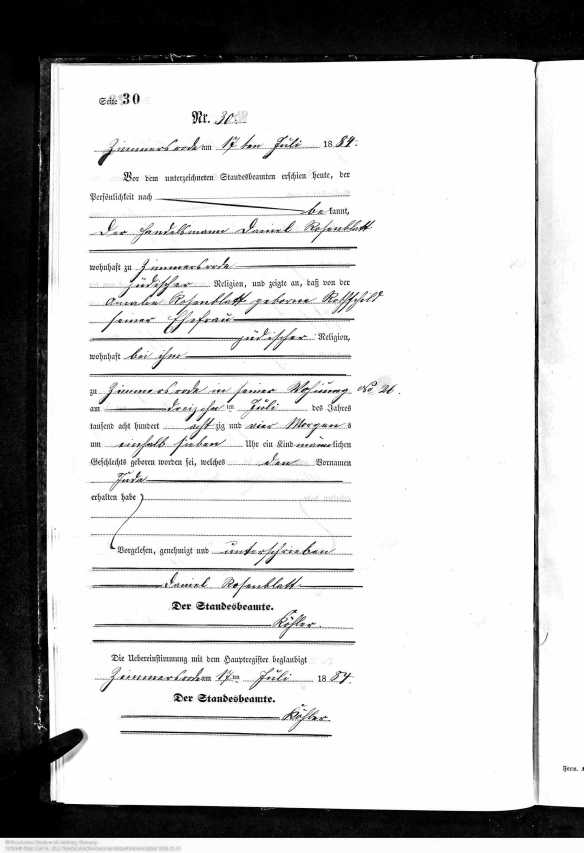 Seite 30
Nr. 30.
Zimmersrode am 17 ten Juli 1884.
Vor dem unterzeichneten Standesbeamten erschien heute, der
Persönlichkeit nach
be kannt,
der Handelsmann Daniel Rosenblatt
wohnhaft zu Zimmersrode
jüdischer Religion, und zeigte an, daß von der
Amalie Rosenblatt geborne Rothschild
seiner Ehefrau
jüdischer Religion,
wohnhaft bei ihm
zu Zimmersrode in seiner Wohnung No 26.
am dreizehn ten Juli des Jahres
tausend acht hundert acht zig und vier Morgens
um einhalb sieben Uhr ein Kind männlichen
Geschlechts geboren worden sei, welches den Vornamen
Juda
erhalten habe
Vorgelesen, genehmigt und unterschrieben
Daniel Rosenblatt
Der Standesbeamte.
Köhler.
Die Uebereinstimmung mit dem Hauptregister beglaubigt
Zimmersrode am 17ten Juli 1884.
Der Standesbeamte.
Köhler.